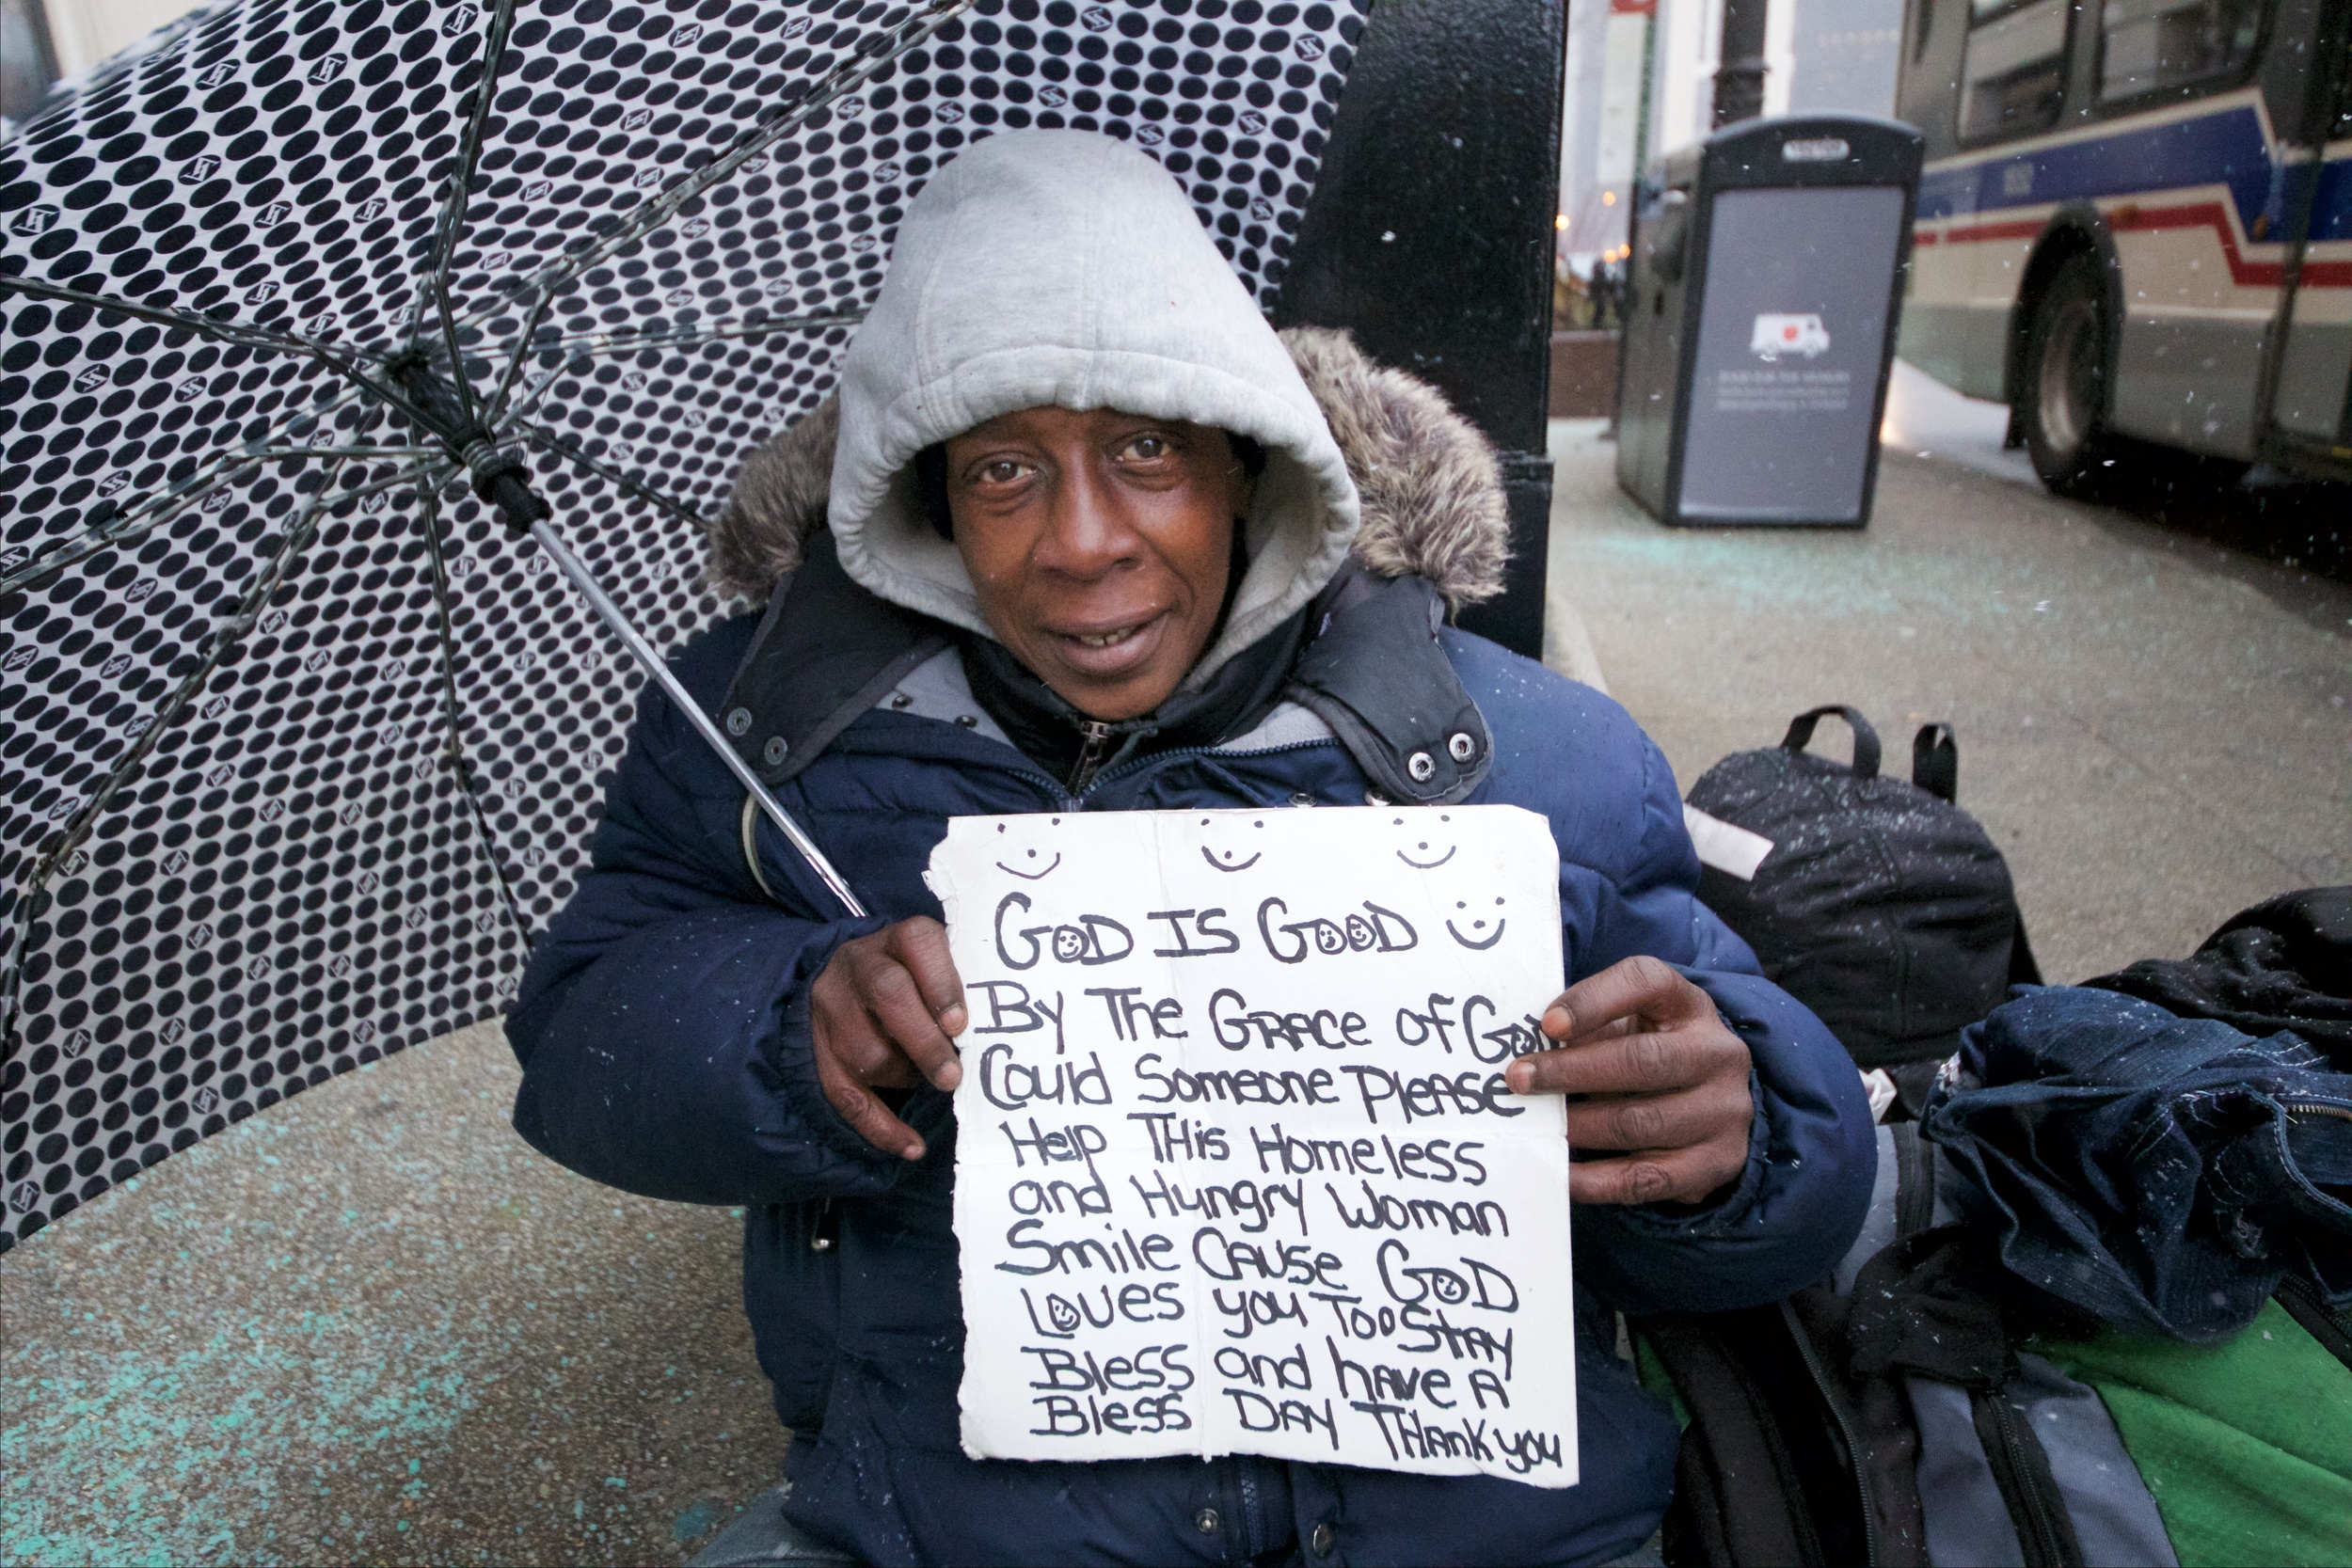 GOD IS GOOD
By The GRACE of GOD
Could Someone PleASe
Help THis Homeless
and Hungry Woman
Smile CAUSe GOD
Loves you Too STAy
Bless and hAve A
Bless DAy THAnk you